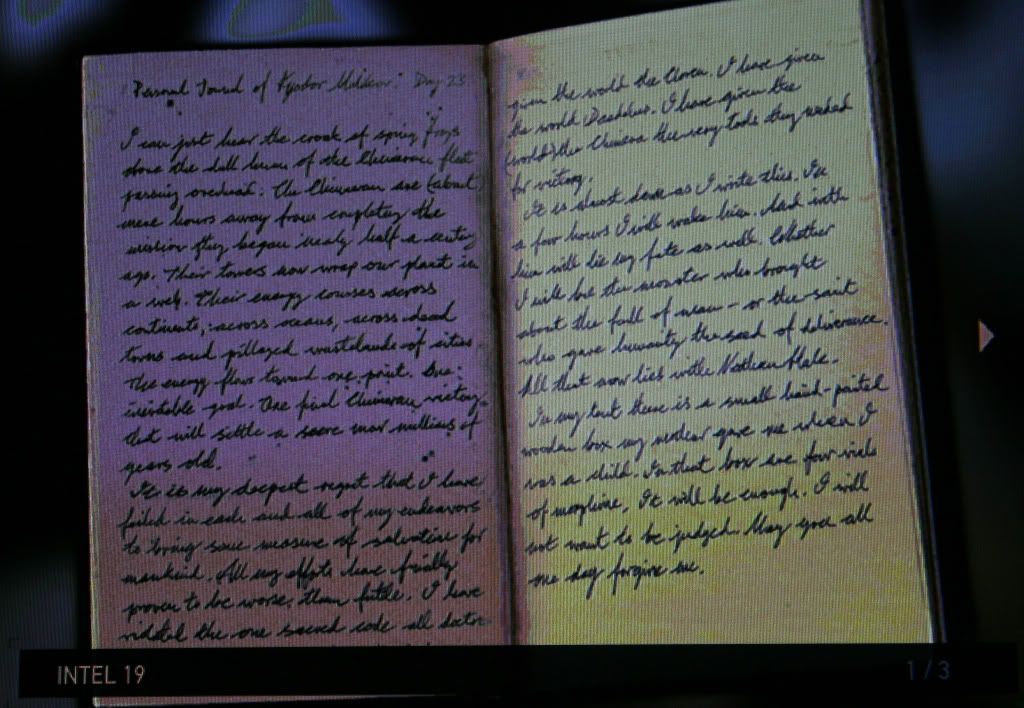 Personal Journal of Fyodor Malikov: Day 23
I can just hear the croak of spring frogs
above the dull hum of the Chimeran fleet
passing overhead. The Chimeran are (about)
mere hours away from completing the
mission they began nearly half a century
ago. Their towers now wrap our planet in
a web. Their energy courses across
continents, across oceans, across dead
towns and pillaged wastelands of cities.
The energy flows toward one point. One
inevitable goal. One final Chimeran victory
that will settle a score many millions of
years old.
It is my deepest regret that I have
failed in each and all of my endeavors
to bring some measure of salvation for
mankind. All my efforts have finally
proven to be worse than futile. I have
violated the one sacred code all doctors
given the world the Cloven. I have given
the world Daedalus. I have given the
(world) the Chimera the very tools they needed
for victory.
It is almost dawn as I write this. In
a few hours I will wake him. And with
him will lie my fate as well. Whether
I will be the monster who brought
about the fall of man - or the saint
who gave humanity the seed of deliverance.
All that now lies with Nathan Hale.
In my tent there is a small hand-painted
wooden box my mother gave me when I
was a child. In that box are four vials
of morphine. It will be enough. I will
not want to be judged. May you all
one day forgive me.
INTEL 19
1/3